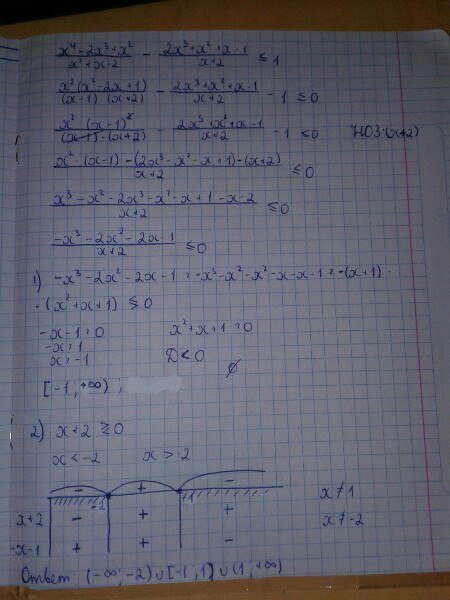 (x⁴-2x³+x²)/(x²+x-2) - (2x³+x²+x-1)/(x+2) ≤ 1
(x²(x²-2x+1))/((x-1)·(x+2)) - (2x³+x²+x-1)/(x+2) - 1 ≤ 0
(x²·(x-1)²)/((x-1)·(x+2)) - (2x³+x²+x-1)/(x+2) - 1 ≤ 0 НОЗ:(x+2)
(x²·(x-1)-(2x³-x²-x+1)-(x+2))/(x+2) ≤ 0
(x³-x²-2x³-x²-x+1-x-2)/(x+2) ≤ 0
(-x³-2x²-2x-1)/(x+2) ≤ 0
1) -x³-2x²-2x-1 = -x³-x²-x²-x-x-1 = -(x+1)·
·(x²+x+1) ≤ 0
-x-1=0 x²+x+1=0
-x=1 D<0
x=-1 ∅
[-1;+∞);
2) x+2 ≷ 0
x<-2 x>-2
- + -
-2 1
x+2 - + + x≠1
-x-1 + + - x≠-2
Ответ (-∞;-2)∪[-1;1)∪(1;+∞)